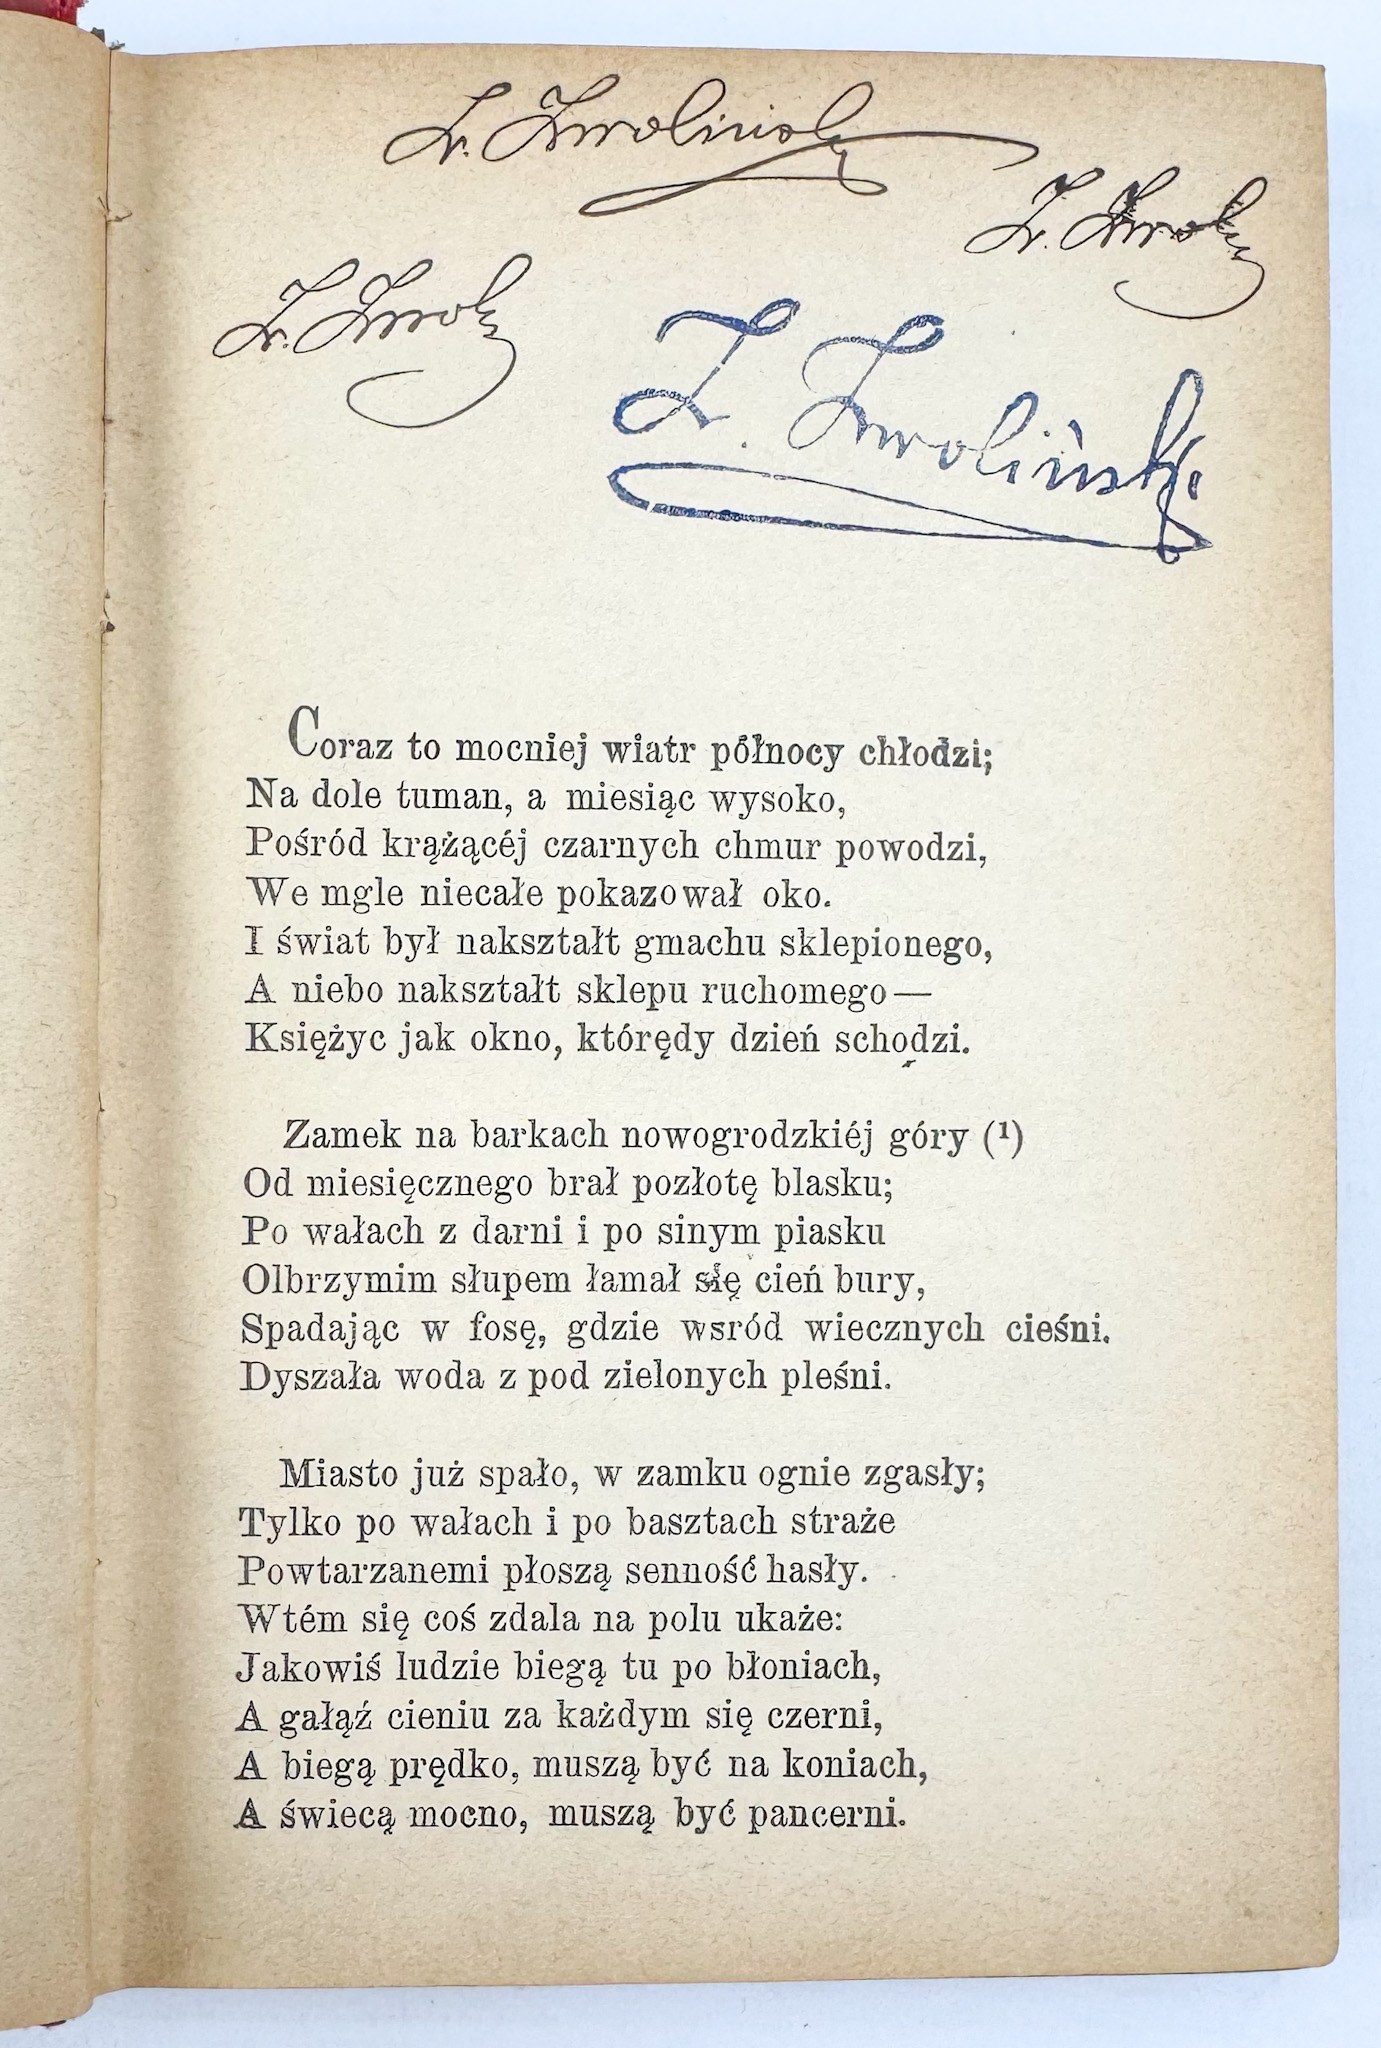 Z. Zwoliński
Z. Zwol
Z. Zwol
Z. Zwoliński
Coraz to mocniej wiatr północy chłodzi;
Na dole tuman, a miesiąc wysoko,
Pośród krążącéj czarnych chmur powodzi,
We mgle niecałe pokazował oko.
I świat był nakształt gmachu sklepionego,
A niebo nakształt sklepu ruchomego—
Księżyc jak okno, którędy dzień schodzi.
Zamek na barkach nowogrodzkiéj góry (¹)
Od miesięcznego brał pozłotę blasku;
Po wałach z darni i po sinym piasku
Olbrzymim słupem łamał się cień bury,
Spadając w fosę, gdzie wsród wiecznych cieśni.
Dyszała woda z pod zielonych pleśni.
Miasto już spało, w zamku ognie zgasły;
Tylko po wałach i po basztach straże
Powtarzanemi płoszą senność hasły.
Wtém się coś zdala na polu ukaże:
Jakowiś ludzie biegą tu po błoniach,
A gałąź cieniu za każdym się czerni,
A biegą prędko, muszą być na koniach,
A świecą mocno, muszą być pancerni.